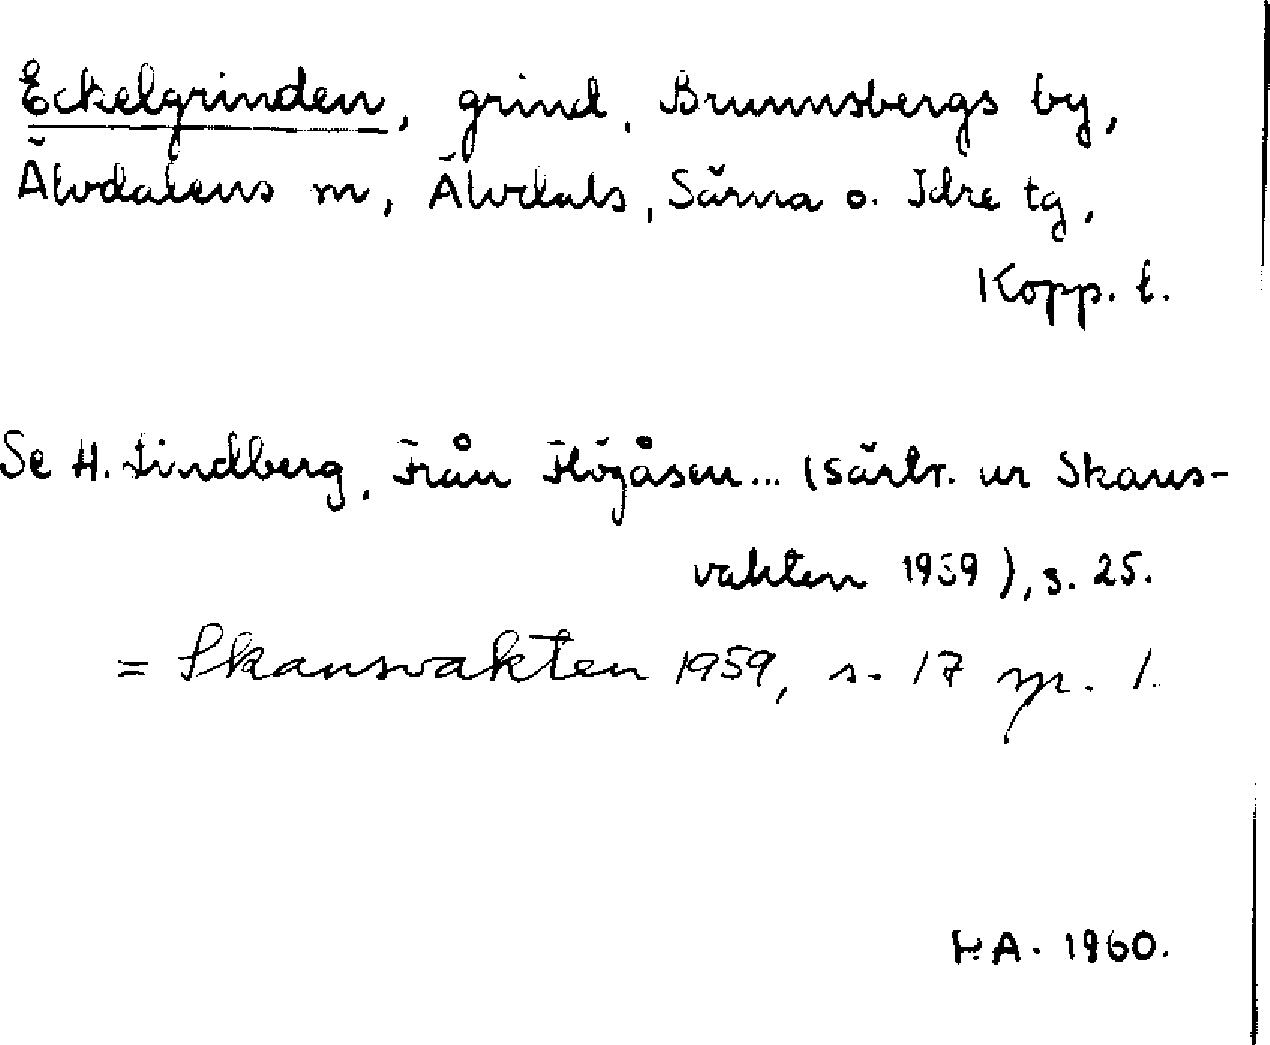 Eckelgrinden, grind, Brunnsbergs by,
Älvdalens sn, Älvdals, Särna o. Idre tg,
Kopp. l.
Se H. Lindberg, Från Högåsen... (särtr. ur Skans-
vakten 1959), s. 25.
= Skansvakten 1959, s. 17 sp. 1.
1960.